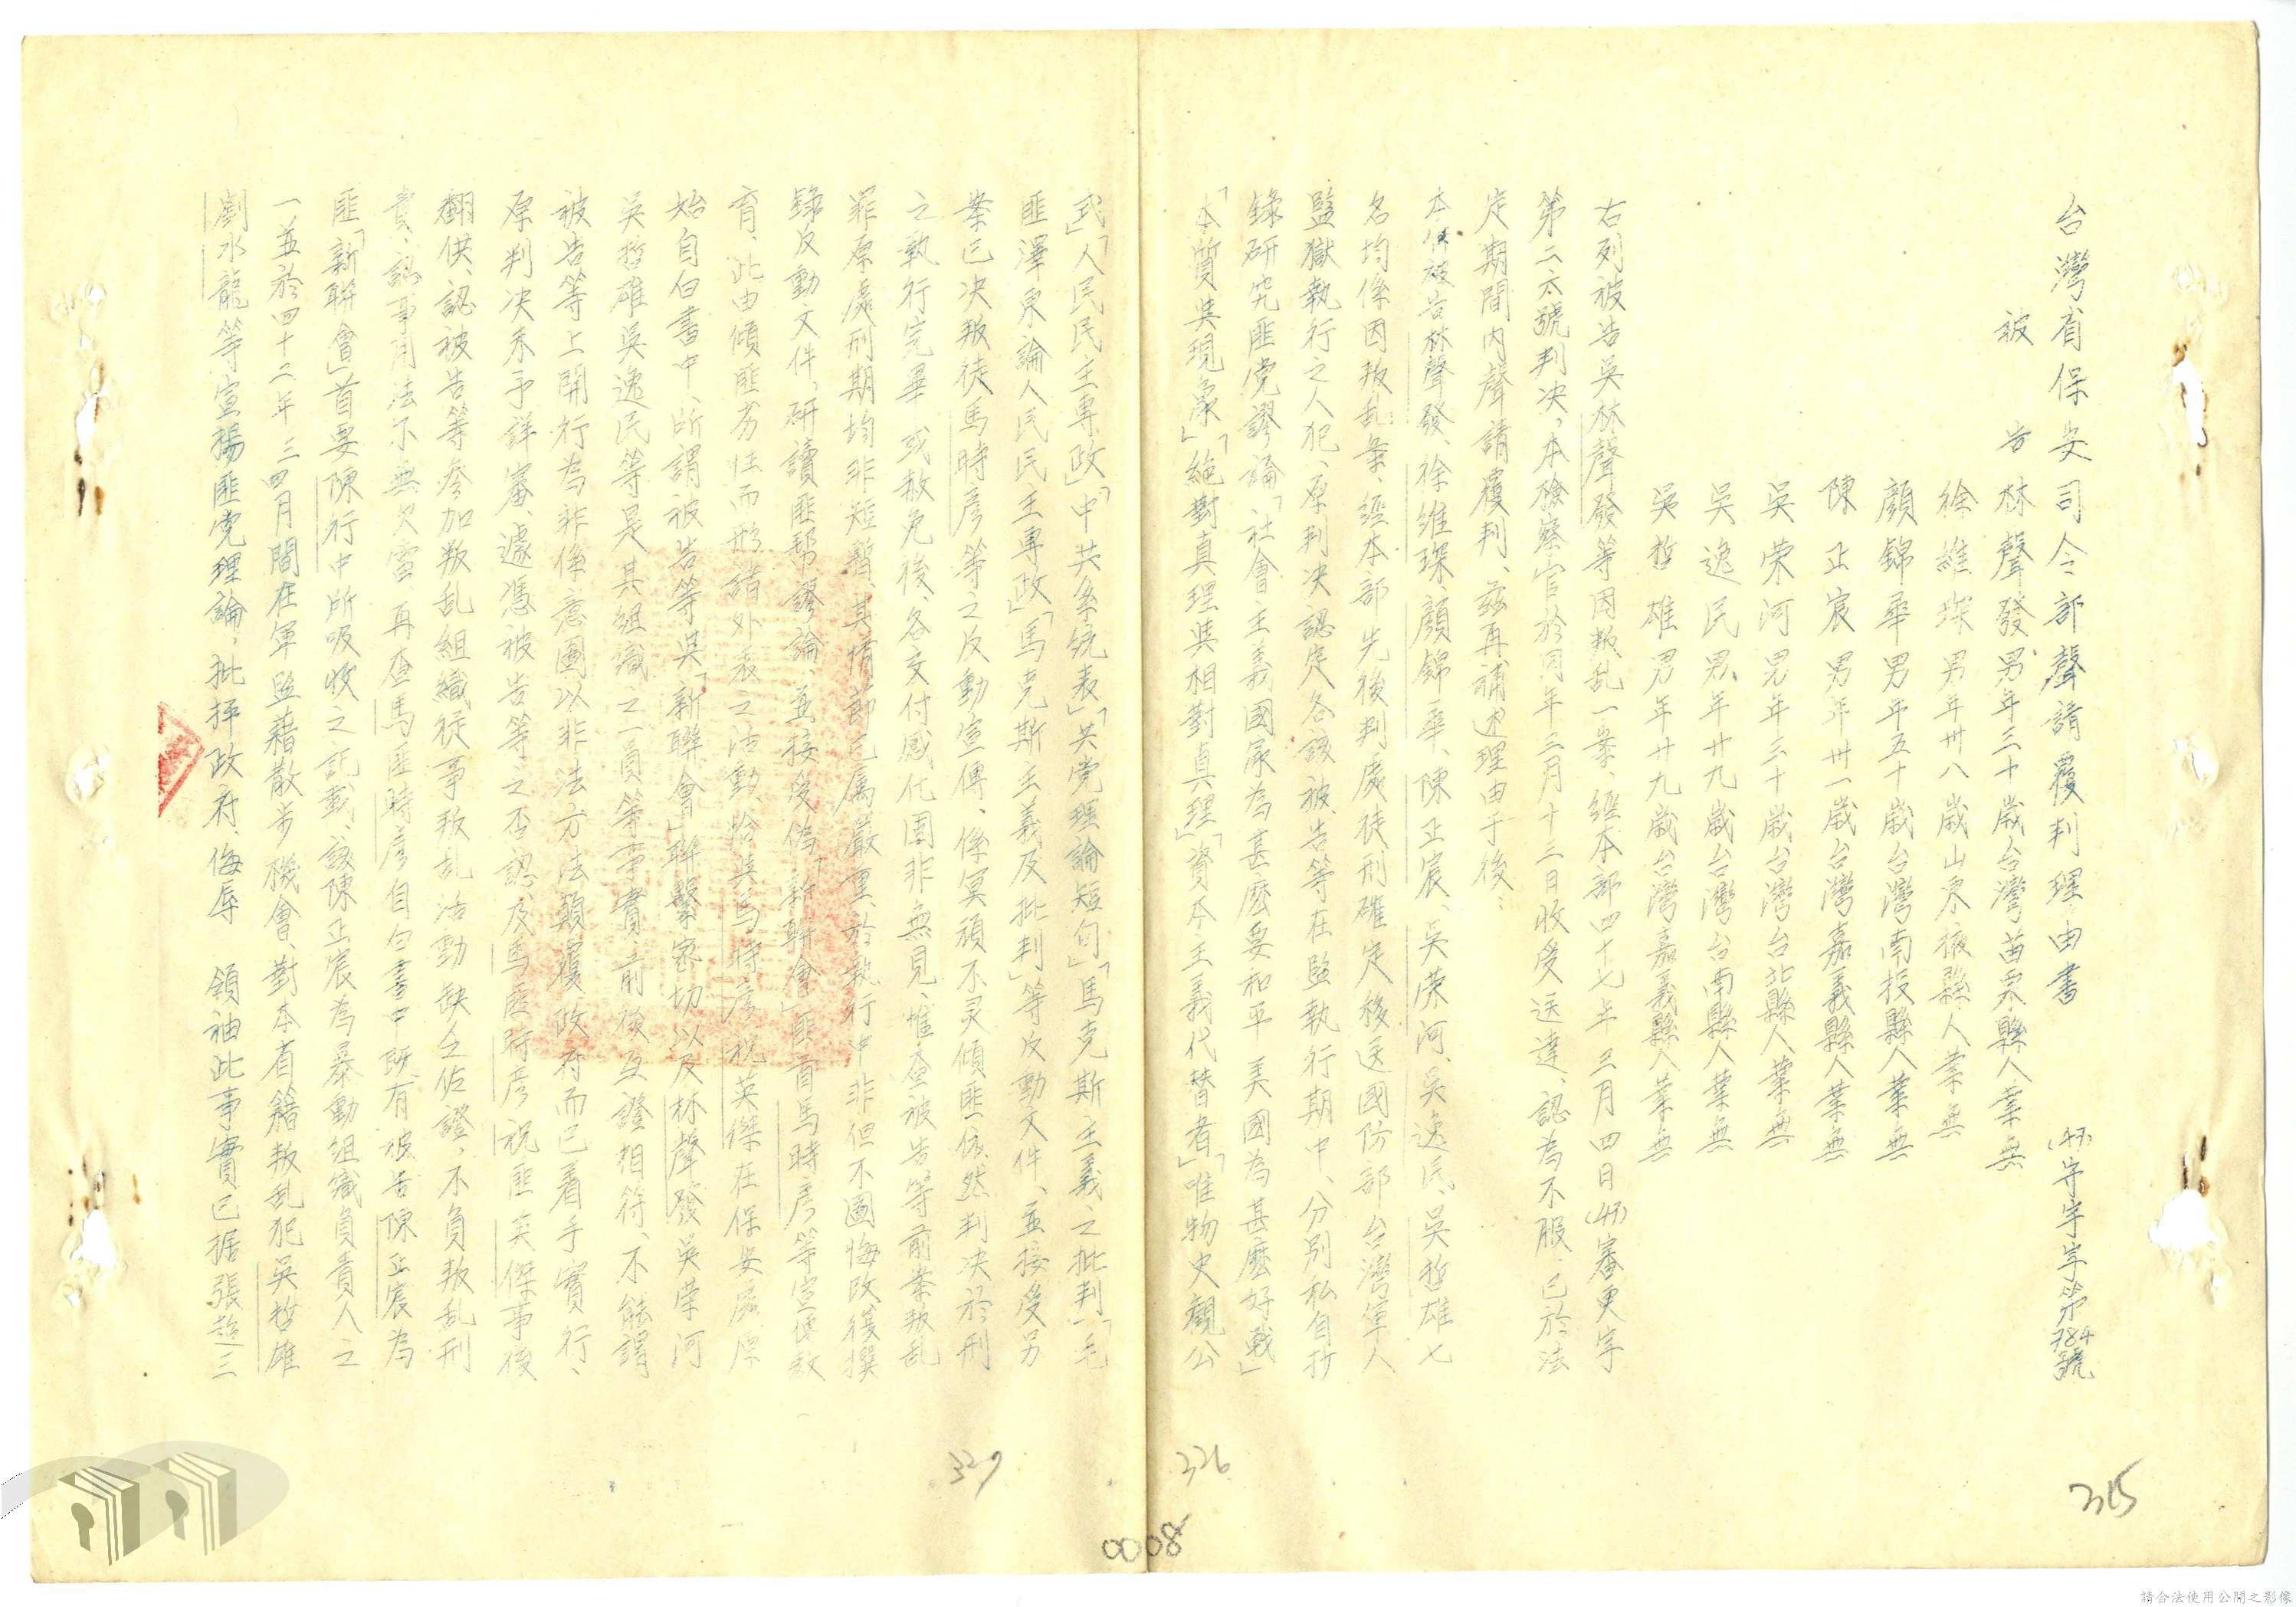 台灣省保安司令部聲請覆判理由書 (47)守字第784號
被告 林聲發 男年三十歲台灣苗栗縣人業無
徐維琛 男年卅八歲山東掖縣人業無
顏錦華 男年五十歲台灣南投縣人業無
陳正宸 男年卅一歲台灣嘉義縣人業無
吳荣河 男年三十歲台灣台北縣人業無
吳逸民 男年廿九歲台灣台南縣人業無
吳哲雄 男年廿九歲台灣嘉義縣人業無
右列被告吳林聲發等因叛乱一案、經本部四十七年三月四日(47)審更字
第二六號判决,本檢察官於同年三月十三日收受送達、認為不服、已於法
定期間內聲請覆判、茲再補述理由于後:
本件被告林聲發、徐維琛、顏錦華、陳正宸、吳荣河、吳逸民、吳哲雄七
名均係因叛乱案、經本部先後判處徒刑確定移送國防部台灣軍人
監獄執行之人犯、原判决認定各該被告等在監執行期中、分別私自抄
錄研究匪党謬論「社會主義國家為甚麼要和平美國為甚麼好戰」
「本質與現象」「絕對真理與相對真理」「資本主義代替者」「唯物史觀公
式」「人民民主專政」「中共系統表」「共党理論短句」「馬克斯主義之批判」「毛
匪澤東論人民民主專政」「馬克斯主義及批判」等反動文件、並接受另
案已决叛徒馬時彥等之反動宣傳、係冥頑不灵傾匪依然判决於刑
之執行完畢或赦免後、各交付感化固非無見、惟查被告等前案叛乱
罪原處刑期均非短暫、其情節已属嚴重、於執行中非但不圖悔改復撰
錄反動文件、研讀匪幫謬論、並接受偽「新聯會」匪首馬時彥等宣傳教
育、此由傾匪劣性而形諸外表之活動、抬與馬時彥祝英傑在保安處原
始自白書中、所謂被告等與「新聯會」聯繫密切以及林聲發吳荣河
吳哲雄吳逸民等是其組織之一員等事實、前後互證相符、不能謂
被告等上開行為非係意圖以非法方法顛覆政府而已着手實行、
原判决未予詳審、遽憑被告等之否認、及馬匪時彥祝匪英傑事後
翻供、認被告等參加叛乱組織從事叛乱活動缺乏佐證,不負叛乱刑
責、認事用法不無欠當、再查馬匪時彥自白書中既有被告陳正宸為
匪「新聯會」首要陳行中所吸收之記載、該陳正宸為暴動組織負責人之
一並於四十二年三四月間在軍監藉散步機會、對本省籍叛乱犯吳哲雄
劉水龍等宣揚匪党理論,批抨政府、侮辱 領袖此事實已据張超三
315
326
327
0008
請合法使用公開之影像